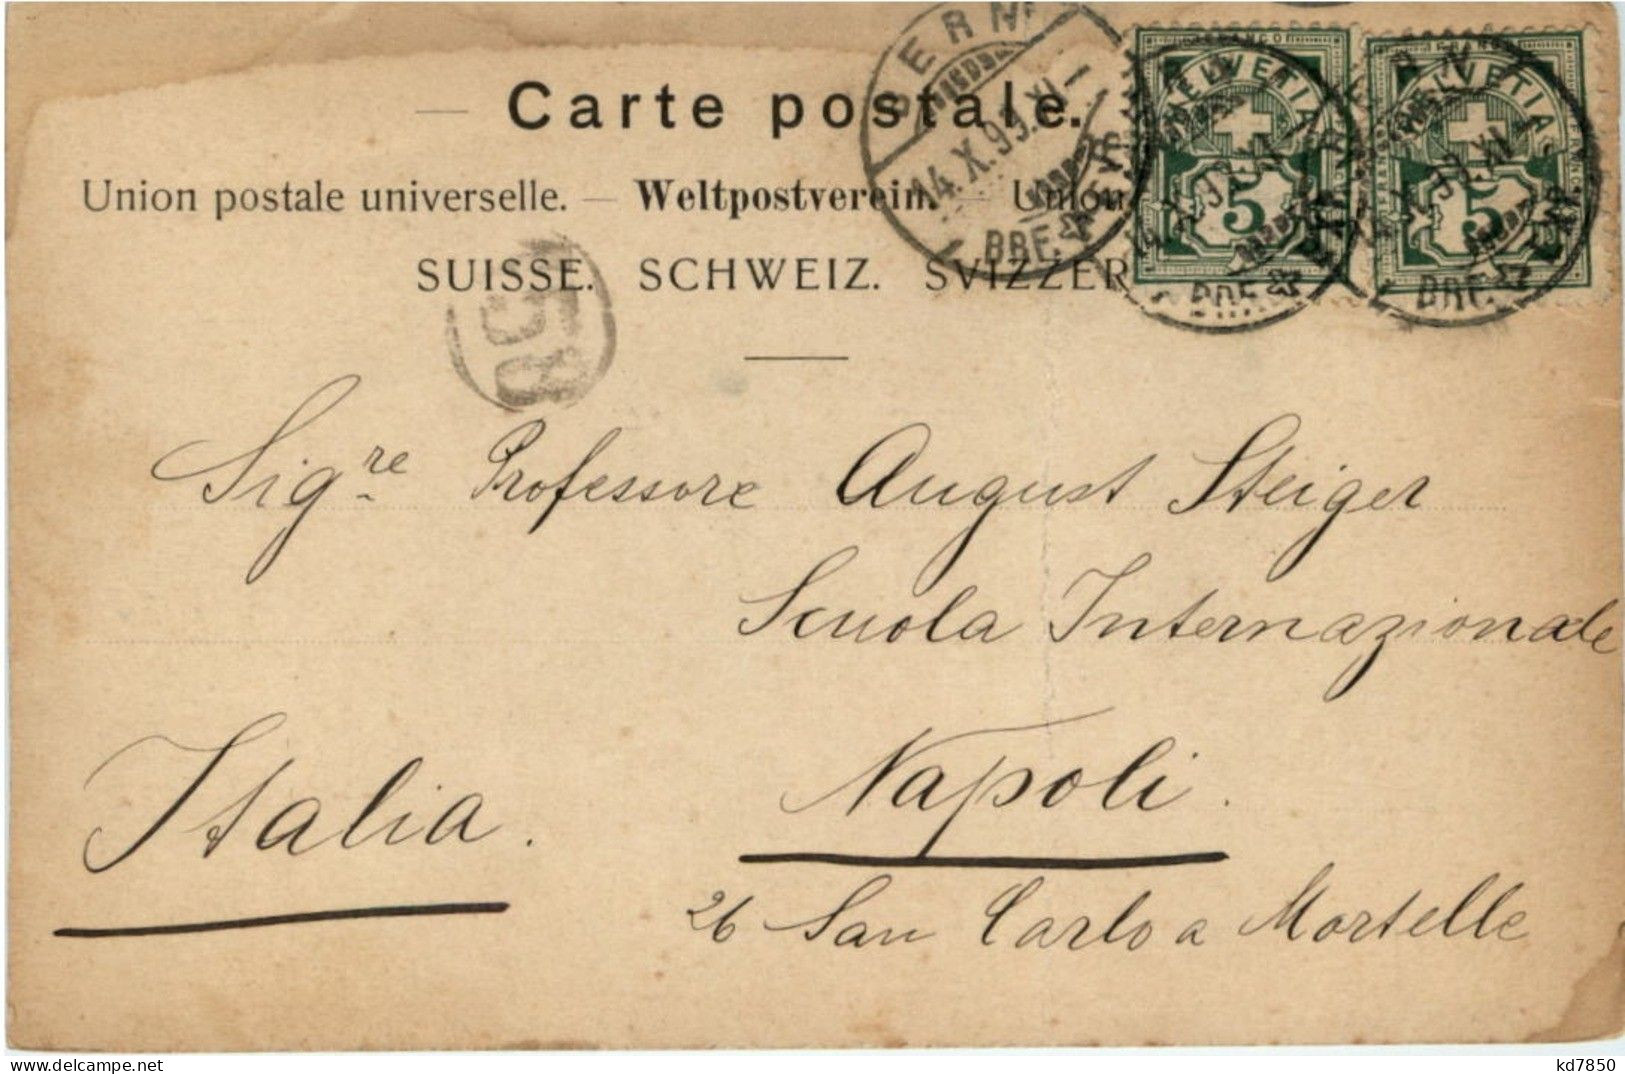 Carte postale.
Union postale universelle. — Weltpostverein. — Union
SUISSE. SCHWEIZ. SVIZZER
BERN
14.X.99.XI—
BRF.
FRANCO
HELVETIA
5
FRANCO
HELVETIA
5
Sigre Professore August Steiger
Scuola Internazionale
Napoli.
Italia.
26 San Carlo a Mortelle
delcampe.net
kd7850